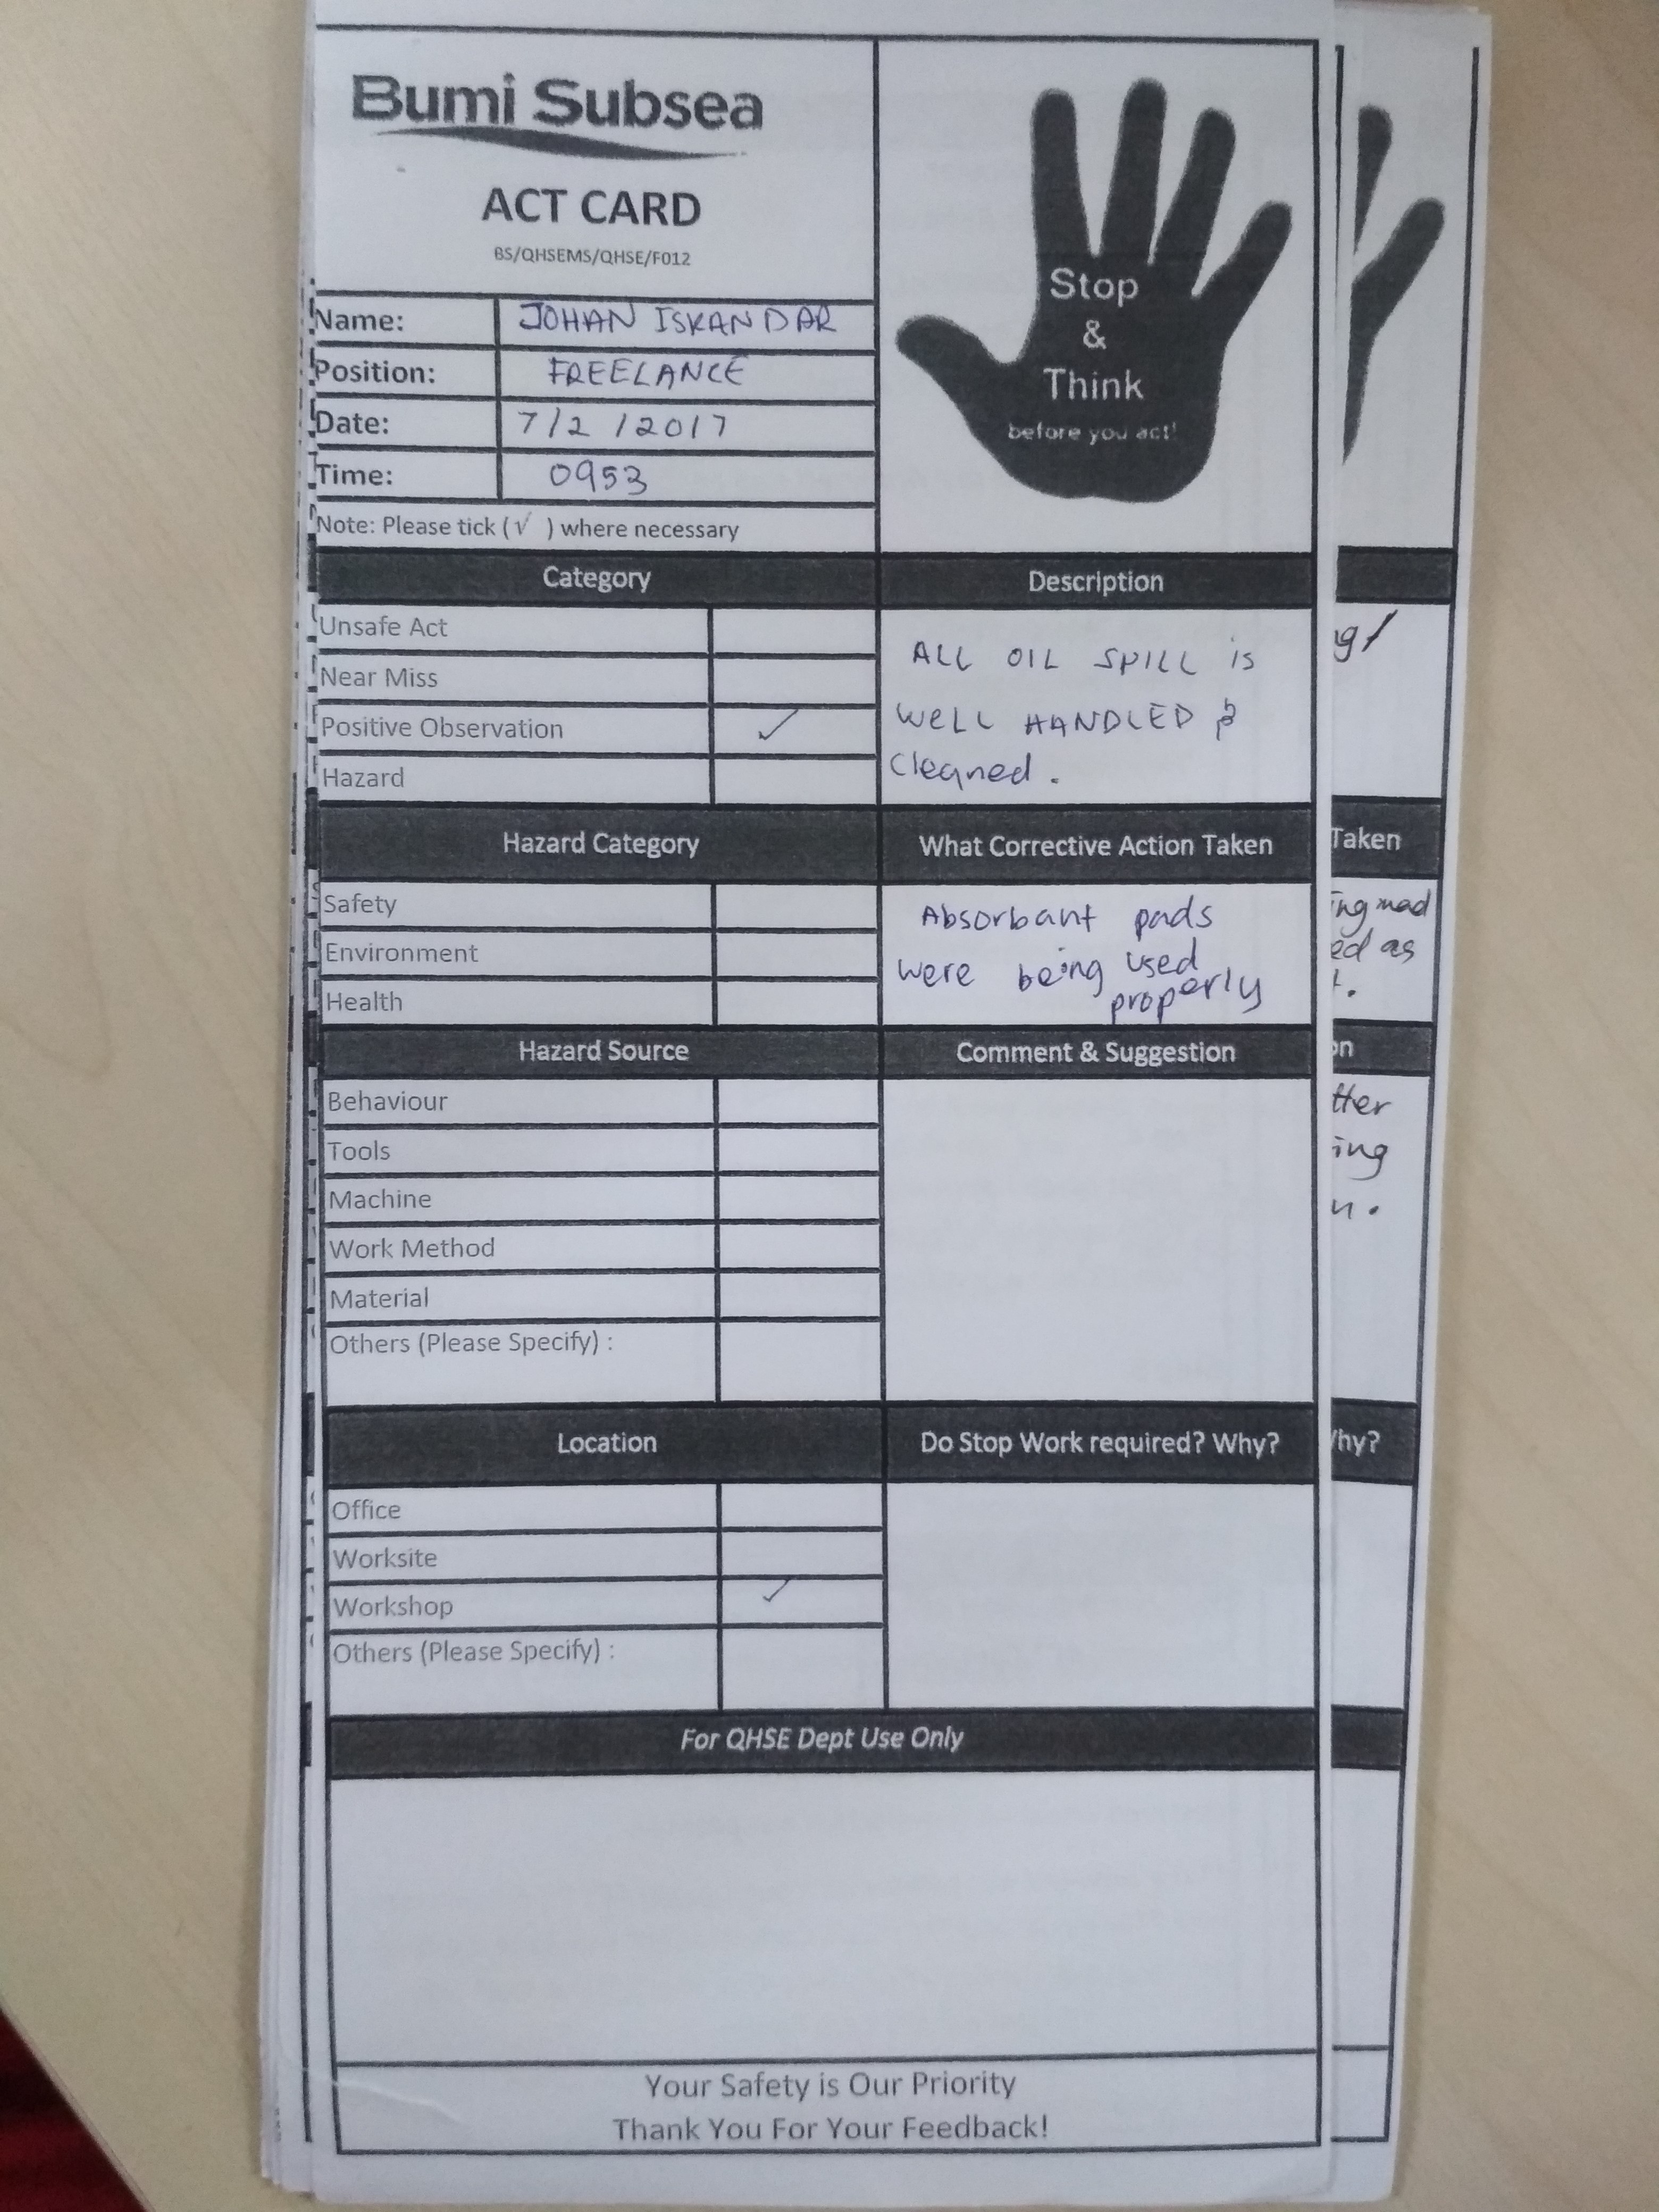 Bumi Subsea
ACT CARD
BS/QHSEMS/QHSE/F012
Stop
&
Think
before you act!
Name: JOHAN ISKANDAR
Position: FREELANCE
Date: 7/2/2017
Time: 0953
Note: Please tick (√ ) where necessary
Category
Unsafe Act
Near Miss
Positive Observation ✓
Hazard
Description
ALL OIL SPILL is
WELL HANDLED &
Cleaned.
Hazard Category
Safety
Environment
Health
What Corrective Action Taken
Absorbant pads
were being used
properly
Hazard Source
Behaviour
Tools
Machine
Work Method
Material
Others (Please Specify) :
Comment & Suggestion
Location
Office
Worksite
Workshop ✓
Others (Please Specify) :
Do Stop Work required? Why?
For QHSE Dept Use Only
Your Safety is Our Priority
Thank You For Your Feedback!
Taken
ed as